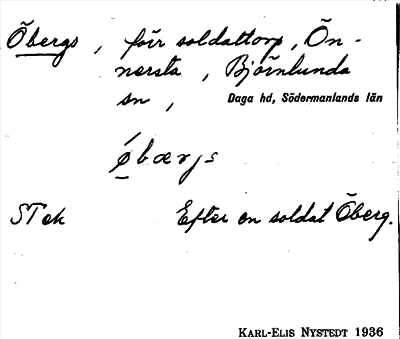 Öbergs, förr soldattorp, Ön-
nersta, Björnlunda
sn, Daga hd, Södermanlands län
øbærjs
STek Efter en soldat Öberg.
KARL-ELIS NYSTEDT 1936